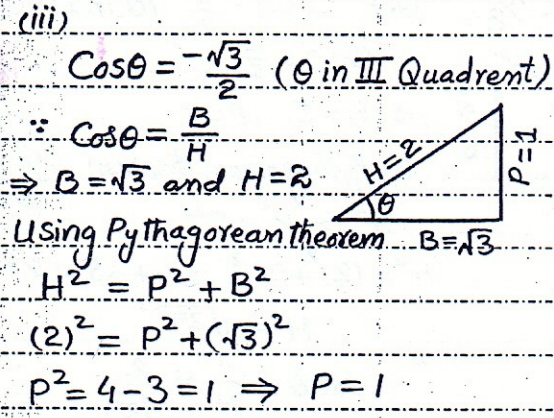 (iii)
Cosθ = -√3/2 (θ in III Quadrent)
∵ Cosθ = B/H
⇒ B = √3 and H = 2
H = 2
P = 1
θ
Using Pythagorean theorem
B = √3
H² = P² + B²
(2)² = P² + (√3)²
P² = 4 - 3 = 1 ⇒ P = 1